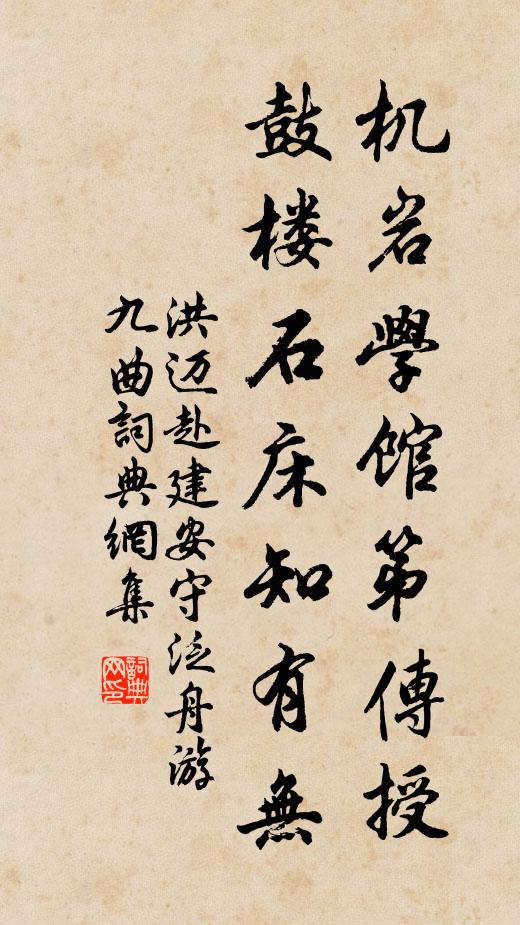 机岩學館第傳授
鼓楼石床知有無
洪迈赴建安守泛舟游
九曲詞典網集
詞典网印